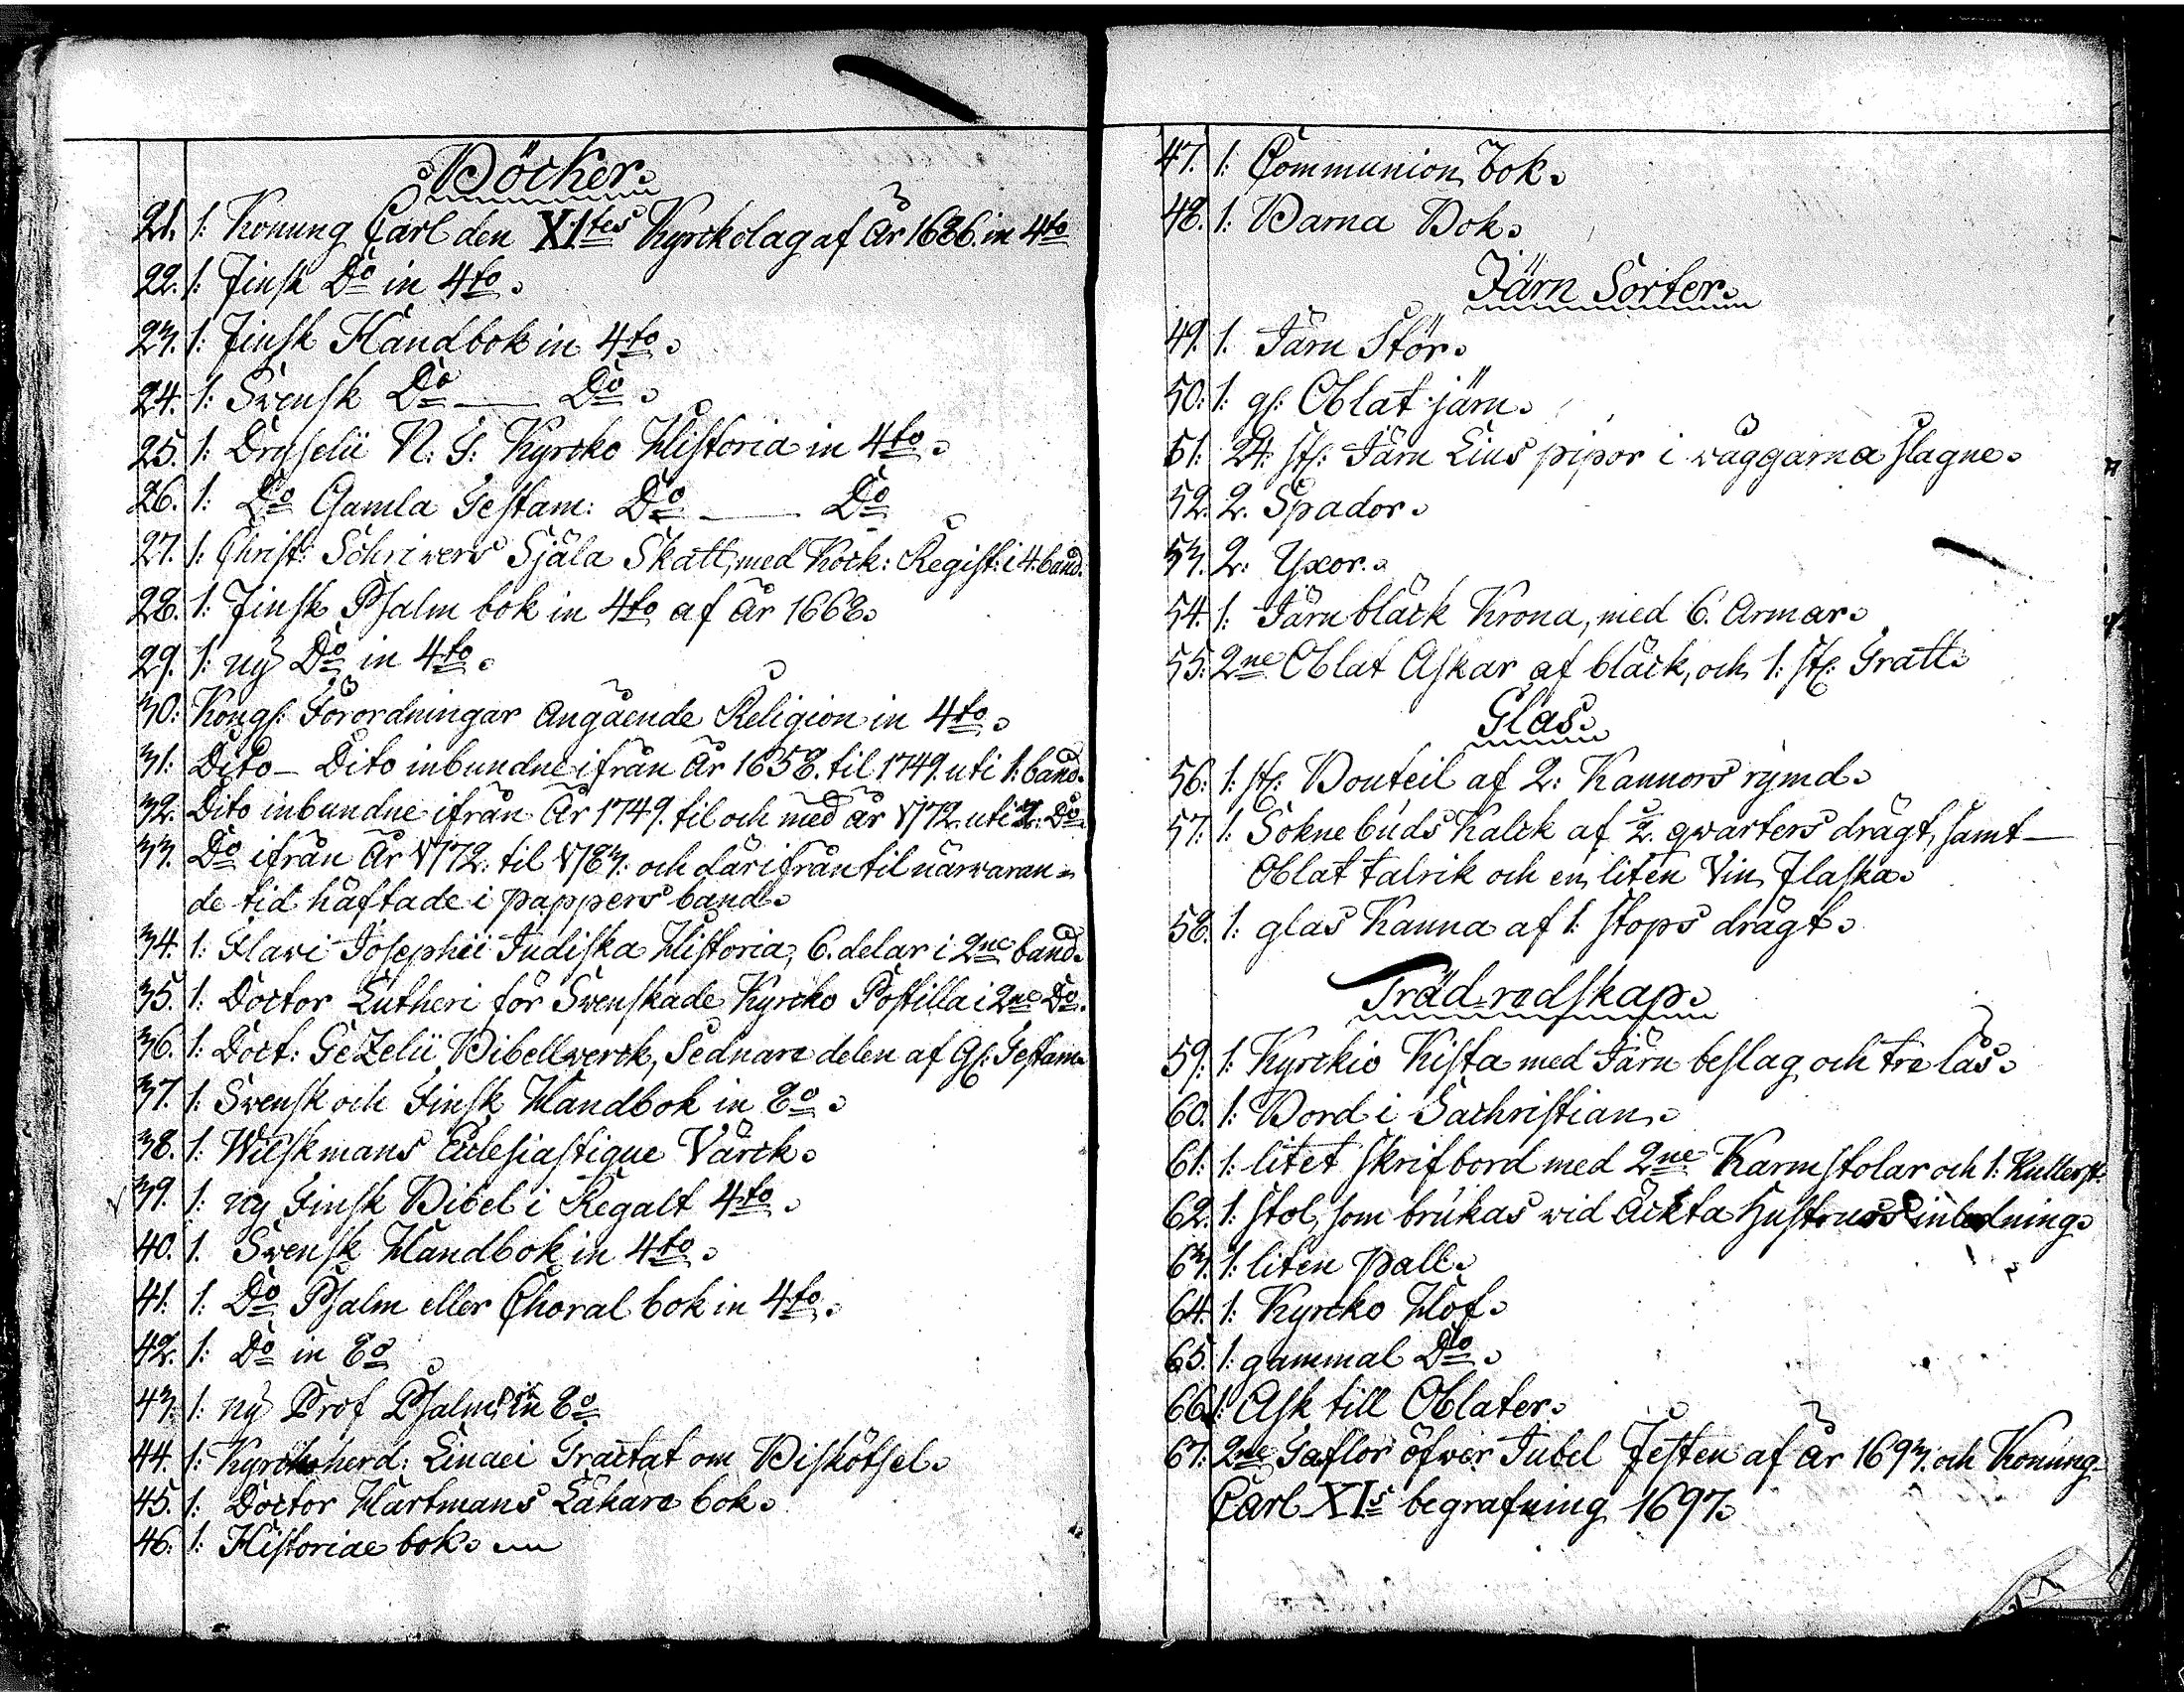 Böcker.
21. 1: Konung Carl den XItes Kyrckolag af År 1686. in 4to
22. 1: Finsk Do in 4to.
23. 1: Finsk Handbok in 4to.
24. 1: Svensk Do — Do.
25. 1: Dryselii N. T: Kyrcko Historia in 4to.
26. 1: Do Gamla Testam: Do — Do
27. 1: Christ: Schrivers Själa Skatt, med Kock: Regist: i 4. band.
28. 1: Finsk Psalm bok in 4to af år 1668.
29. 1: ny Do in 4to.
30: Kongl: Förordningar Angående Religion in 4to.
31: Dito — Dito inbundne ifrån År 1658. til 1749. uti 1: band.
32. Dito inbundne ifrån År 1749. til och med år 1772. uti 2. Do.
33. Do ifrån År 1772: til 1783: och därifrån til närvaran=
de tid häftade i pappers band.
34. 1: Flavi Josephii Judiska Historia, 6. delar i 2ne band.
35. 1: Doctor Lutheri för Svenskade Kyrcko Postilla i 2ne Do.
36. 1: Doct: Gezelii Bibellverck, Sednare delen af Gl: Testam.
37. 1: Svensk och Finsk Handbok in 8o.
38. 1: Wilskmans Eclesiastique Värck.
39. 1: ny Finsk Bibel i Regalt 4to.
40. 1. Svensk Handbok in 4to.
41. 1: Do Psalm eller Choral bok in 4to.
42. 1: Do in 8o
43. 1: ny Prof Psalm: in 8o
44. 1: Kyrckoherd: Linaei Tractat om Biskötsel.
45. 1: Doctor Hartmans Läkare bok.
46. 1: Historiae bok.
47. 1: Communion bok.
48. 1: Barna Bok.
Järn Sorter.
49. 1. Järn Stör.
50: 1: gl: Oblat järn.
51: 24: st: Järn Lius pipor i väggarna slagne.
52. 2. Spador.
53. 2: Yxor.
54. 1: Järn bläck Krona, med 6. Armar.
55. 2ne Oblat Askar af bläck, och 1: st: Tratt.
Glas.
56: 1: st: Bouteil af 2: Kannors rymd.
57: 1: Sokne buds Kalck af ½. qvarters drägt, samt —
Oblat talrik och en liten Vin Flaska.
58. 1: glas Kanna af 1: stops drägt.
Träd redskap.
59. 1: Kyrckio Kista med Järn beslag och tre lås.
60. 1: Bord i Sachristian.
61: 1: litet skrifbord med 2ne Karmstolar och 1:
62. 1: stol, som brukas vid äckta Hustrurs inledning.
63. 1: liten pall.
64. 1: Kyrcko Håf.
65. 1: gammal Do.
66. 1: Ask till Oblater.
67: 2ne Taflor öfver Jubel Festen af år 1693. och Konung
Carl XIs begrafning 1697.